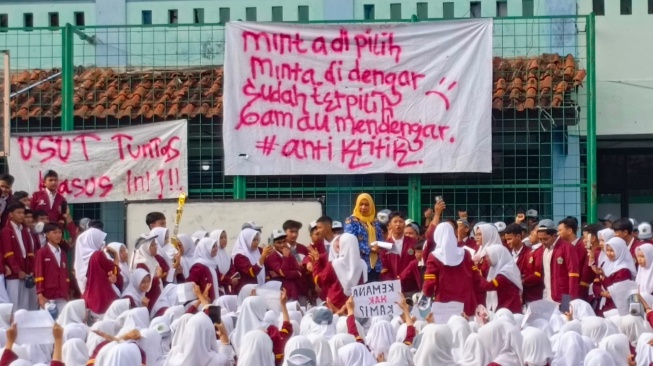 minta di pilih
minta di dengar
Sudah terpilih
Gam au mendengar.
# anti kritik?
USUT TUNTAS
KASUS INI !!!
KEMANA
HAK
KAMI